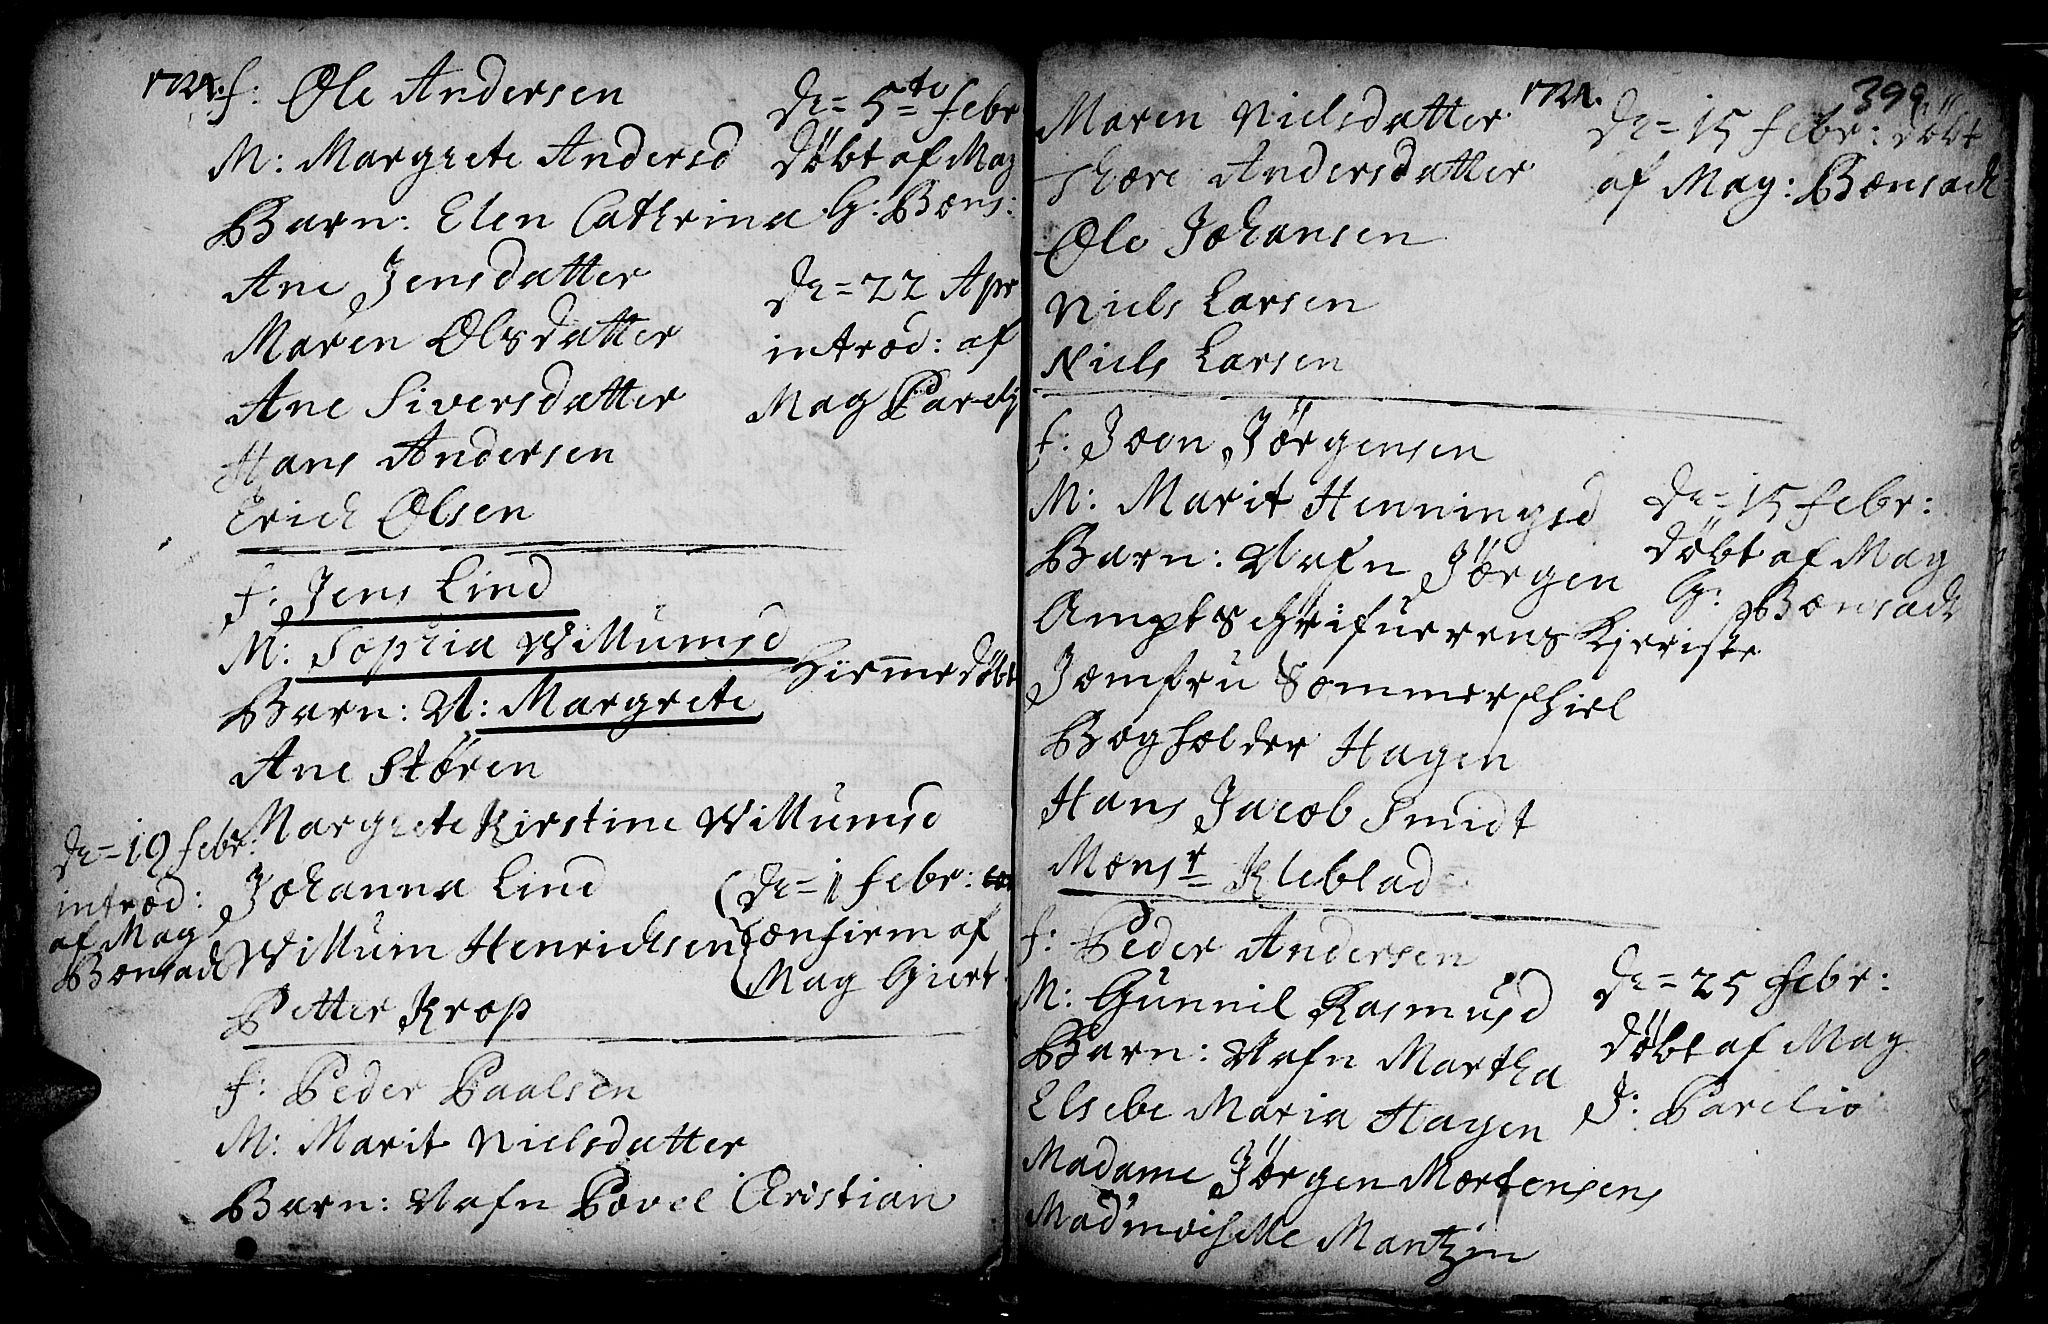 1724.
f: Ole Andersen
M: Margrete Andersd
Barn: Elen Cathrina
Ane Jensdatter
Maren Olsdatter
Ane Siversdatter
Hans Andersen
Erich Olsen
De= 5te febr
döbt af Mag
G: Bons:
De= 22 Apr
introd: af
Mag Pareli
f: Jens Lind
M: Sophia Willumsd
Barn: N: Margrete
Ane Stören
Margrete Kirstine Willumsd
Johanna Lind
Willum Henrichsen
Petter Krop
Hiemmedöbt
De= 19 febr:
introd:
af Mag
Bonsach
De= 1 febr:
confirm af
Mag Giert
f: Peder Paalsen
M: Marit Nielsdatter
Barn: Nafn Povel Christian
1724.
399
Maren Nielsdatter
Thore Andersdatter
Ole Johansen
Niels Larsen
Niels Larsen
De= 15 febr: döbt
af Mag: Bonsach
f: Joen Jörgensen
M: Marit Henningsd
Barn: Nafn Jörgen
Amptschrifuerens Kjeriste
Jomfru Sommerschiel
Bogholder Hagen
Hans Jacob Smidt
Monsr Kleblad
De= 15 febr:
döbt af Mag
G: Bonsach
f: Peder Andersen
M: Gunnil Rasmusd
Barn: Nafn Martha
Elsebe Maria Hagen
Madame Jörgen Mortensens
Madmoiselle Mantzin
De= 25 febr:
döbt af Mag
J: Parelio